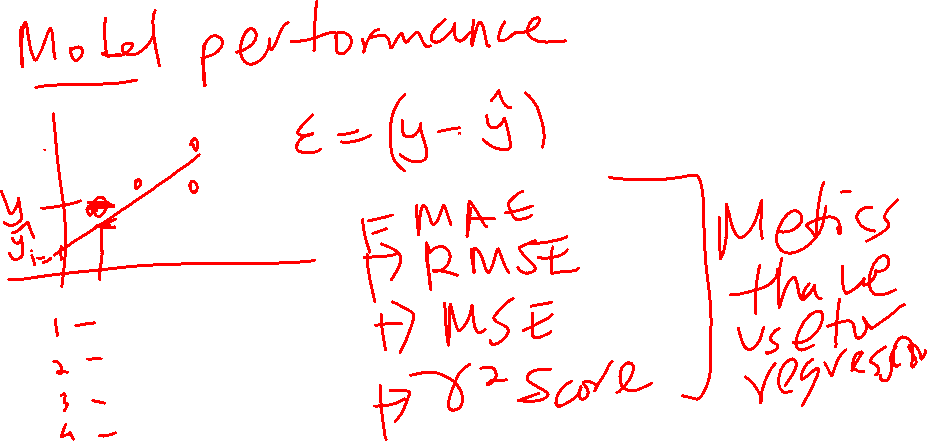 Model performance
ε = (y - ŷ)
y
ŷ
i=1
MAE
RMSE
MSE
r² Score
Metics
that we
use for
regression
1 -
2 -
3 -
4 -